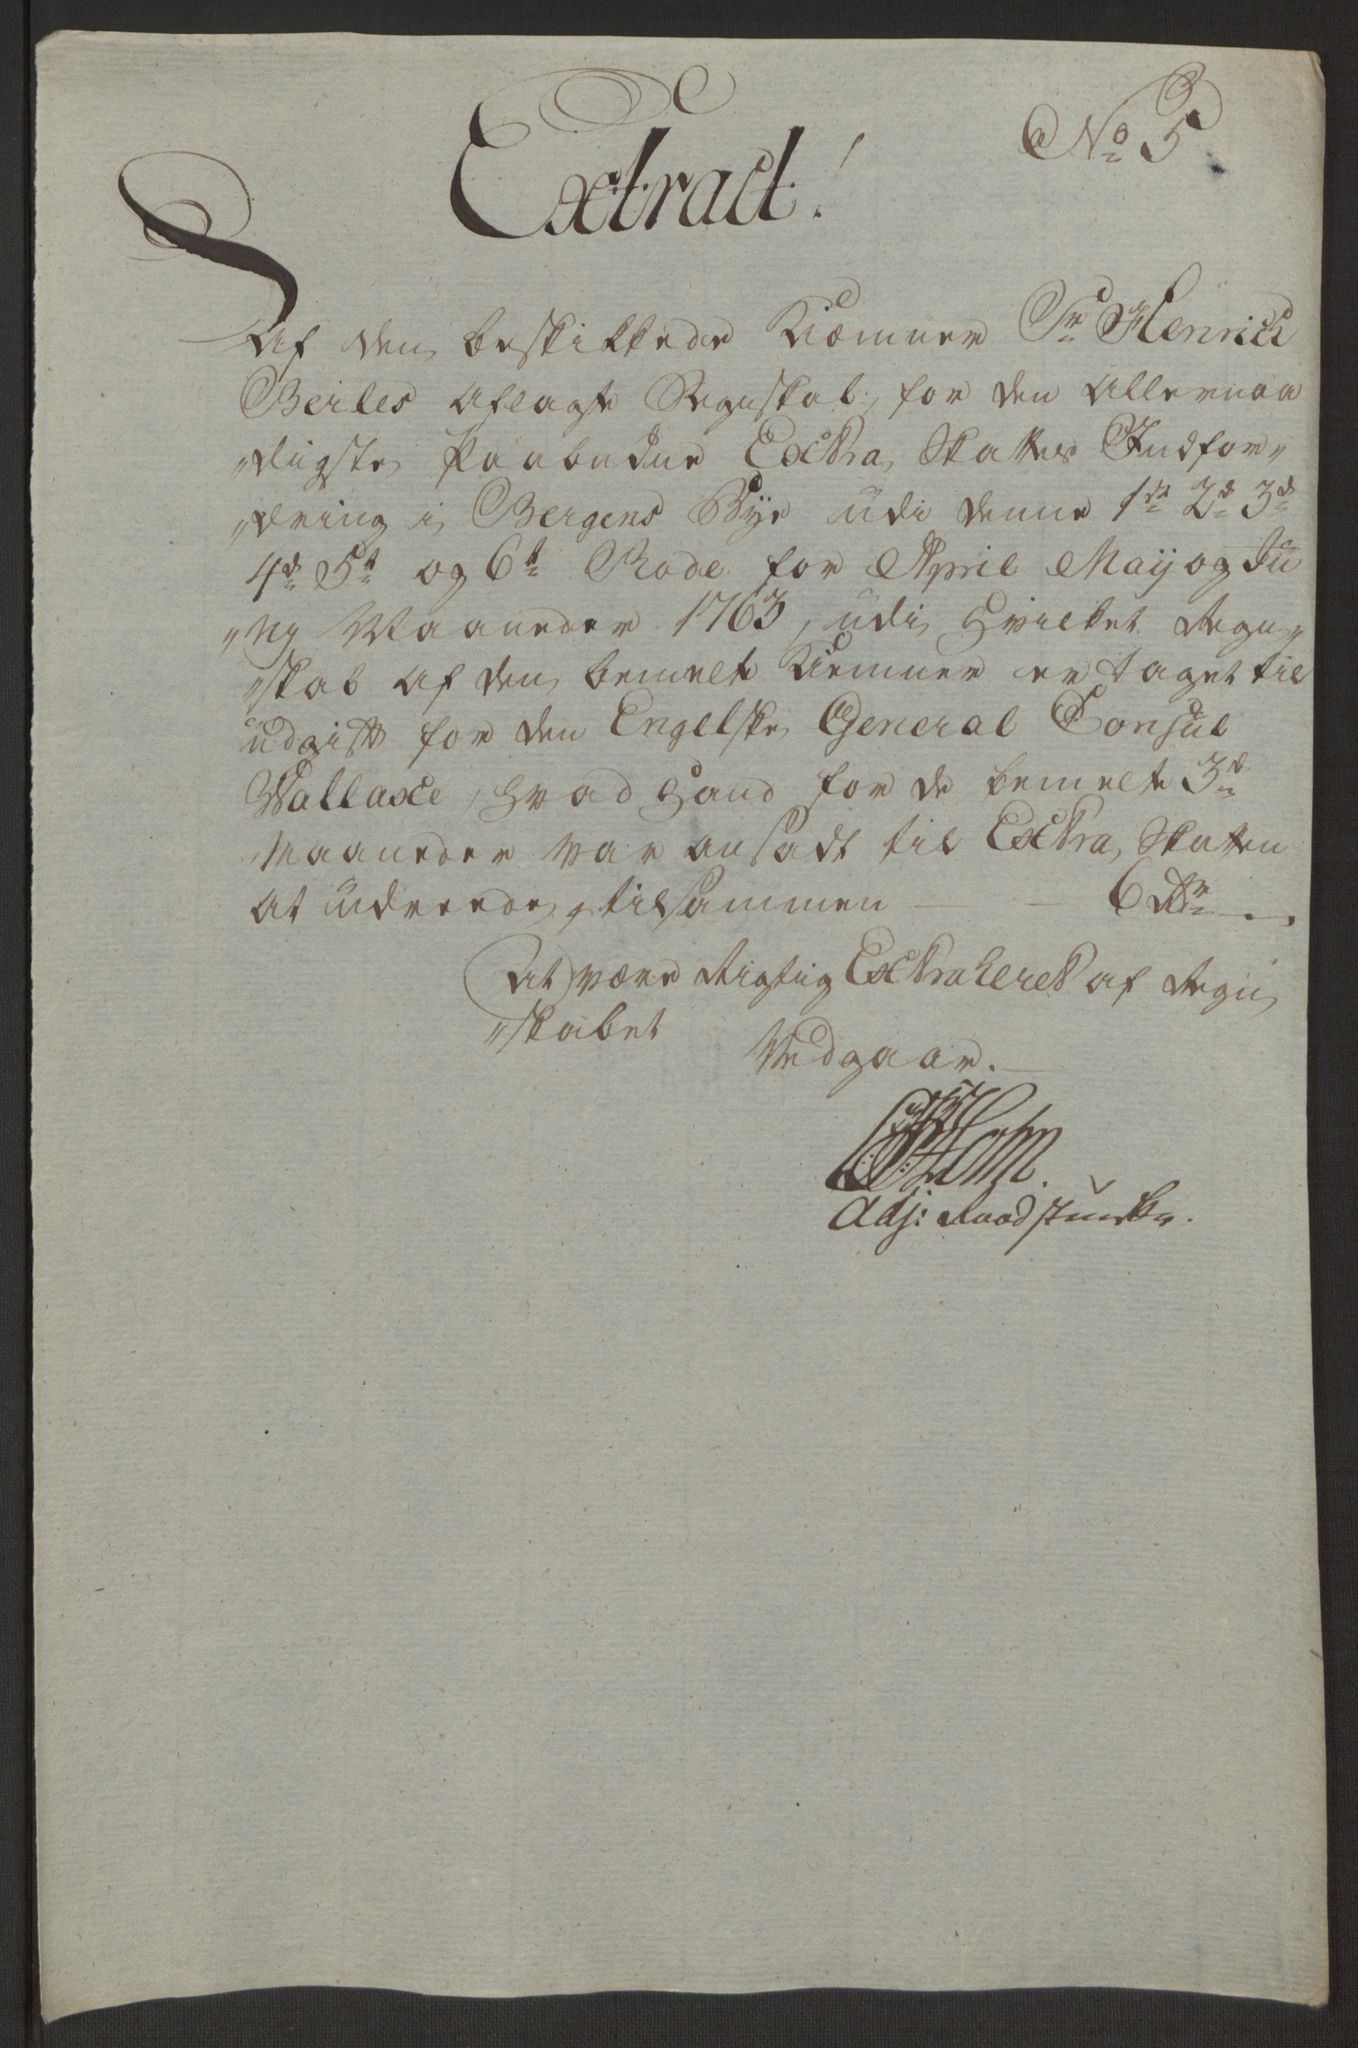 No 5
Extract!
Af den beskikkede Kiæmner Sr Henrich
Berles aflagte Regnskab, for den Allernaa
„digste paabudne Extra Skattes Indfor„
„dring i Bergens Bye udi denne 1ste 2de 3de
4de 5te og 6te Rode for April Maij og Ju
„ny Maaneder 1763, udi hvilket Regn„
„skab af den bemelte Kiemner er taget til
udgift for den Engelske General Consul
Wallace, hvad hand for de bemelte 3de
Maaneder var ansadt til Extra Skatten
at udreede, tilsammen — — 6 Rdr — „
At være Rigtig Extraheret af Regn
„skabet
Vedgaar.
Holm.
Adj: Raadstueskr.